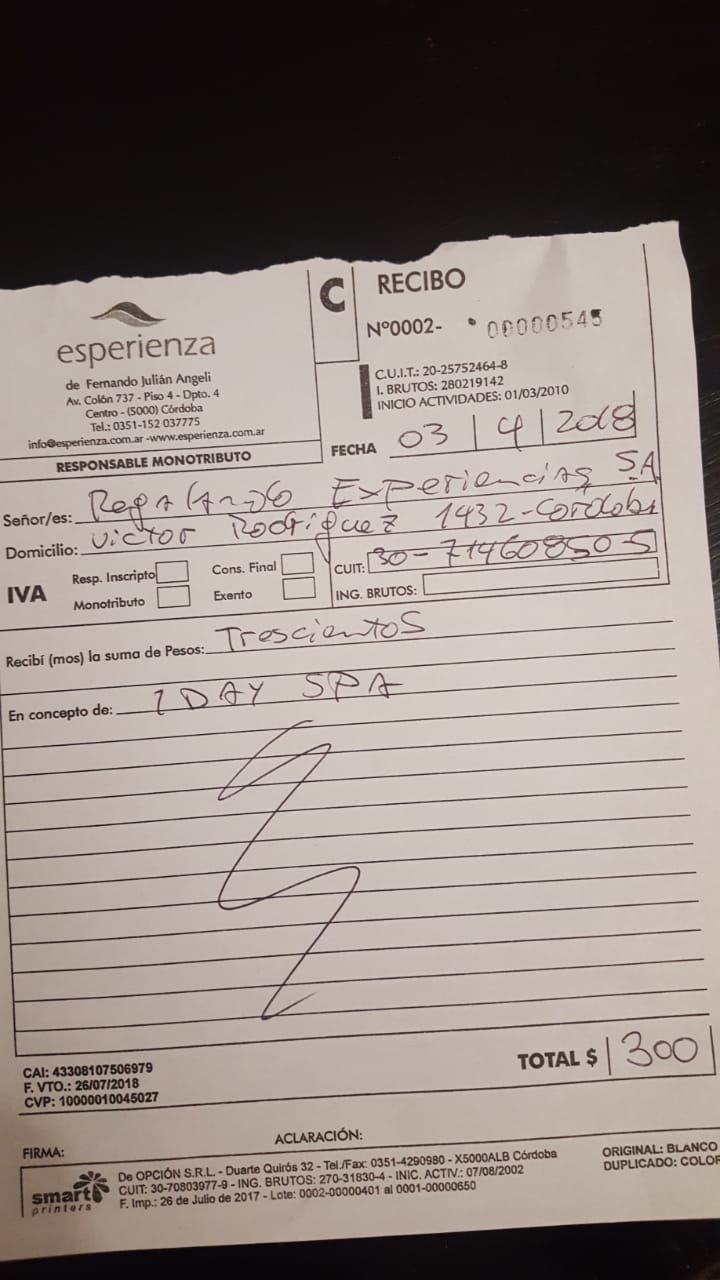 esperienza
de Fernando Julián Angeli
Av. Colón 737 - Piso 4 - Dpto. 4
Centro - (5000) Córdoba
Tel.: 0351-152 037775
info@esperienza.com.ar -www.esperienza.com.ar
RESPONSABLE MONOTRIBUTO
C
RECIBO
Nº0002- 00000545
C.U.I.T.: 20-25752464-8
I. BRUTOS: 280219142
INICIO ACTIVIDADES: 01/03/2010
FECHA 03 | 4 | 2018
Señor/es: Regalando Experiencias SA
Domicilio: Victor Rodriguez 1432-Cordoba
IVA
Resp. Inscripto
Cons. Final
Monotributo
Exento
CUIT: 30-71460850-5
ING. BRUTOS:
Recibí (mos) la suma de Pesos: Trescientos
En concepto de: 1 DAY SPA
CAI: 43308107506979
F. VTO.: 26/07/2018
CVP: 10000010045027
TOTAL $ 300
FIRMA:
ACLARACIÓN:
smart printers
De OPCIÓN S.R.L. - Duarte Quirós 32 - Tel./Fax: 0351-4290980 - X5000ALB Córdoba
CUIT: 30-70803977-9 - ING. BRUTOS: 270-31830-4 - INIC. ACTIV.: 07/08/2002
F. Imp.: 26 de Julio de 2017 - Lote: 0002-00000401 al 0001-00000650
ORIGINAL: BLANCO
DUPLICADO: COLOR